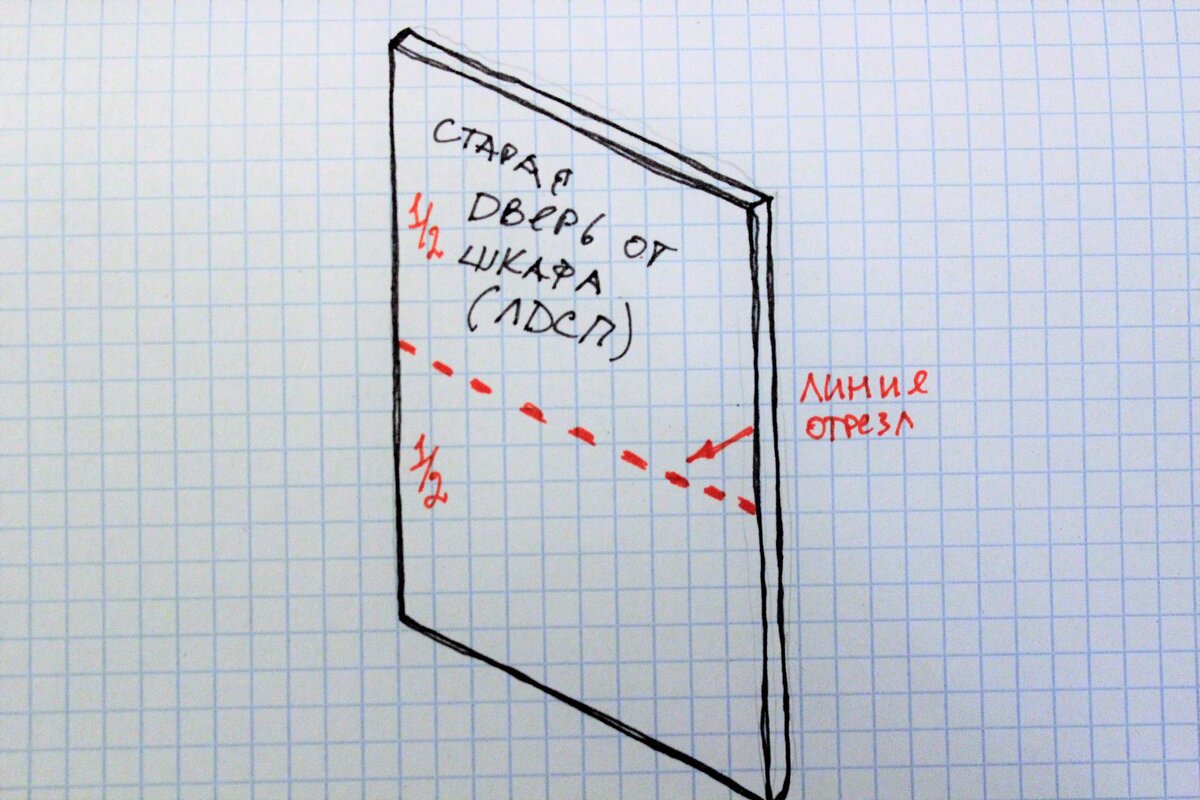 СТАРАЯ
1/2 ДВЕРЬ ОТ
ШКАФА
(ЛДСП)
ЛИНИЯ
ОТРЕЗА
1/2